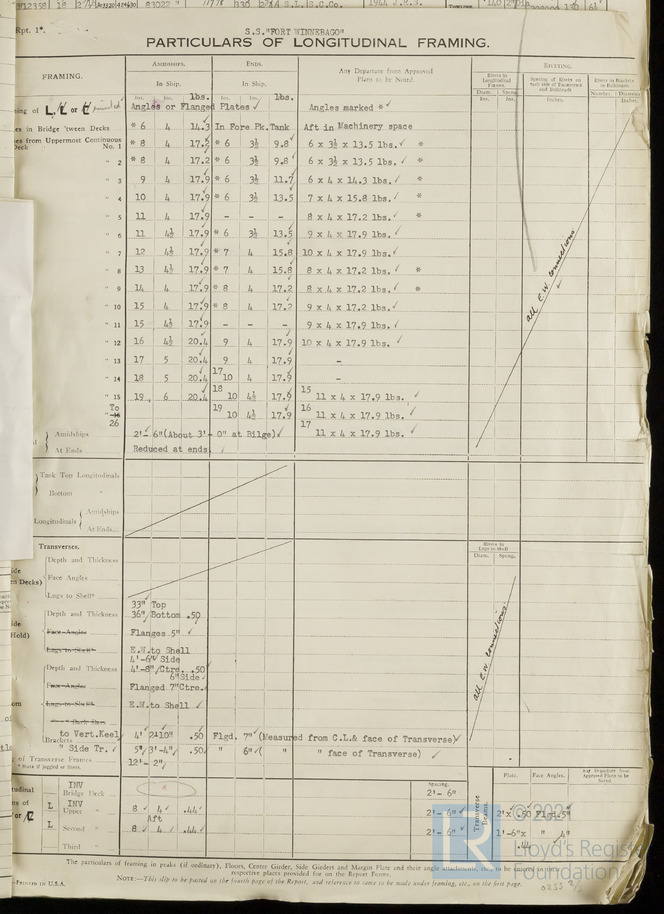 S.S."FORT WINNEBAGO"
Rpt. 1*.
PARTICULARS OF LONGITUDINAL FRAMING.
FRAMING.
AMIDSHIPS. ENDS. Any Departure from Approved Plans to be Noted. RIVETING.
In Ship. In Ship.
Ins. Ins. lbs. Ins. Ins. lbs.
Angles or Flanged Plates ✓ Angles marked * ✓
in Bridge 'tween Decks * 6 4 14.3 In Fore Pk.Tank Aft in Machinery space
from Uppermost Continuous Deck No. 1 * 8 4 17.2 * 6 3½ 9.8 6 x 3½ x 13.5 lbs. ✓ *
" 2 * 8 4 17.2 * 6 3½ 9.8 6 x 3½ x 13.5 lbs. ✓ *
" 3 9 4 17.9 * 6 3½ 11.7 6 x 4 x 14.3 lbs. ✓ *
" 4 10 4 17.9 * 6 3½ 13.5 7 x 4 x 15.8 lbs. ✓ *
" 5 11 4 17.9 - - - 8 x 4 x 17.2 lbs. ✓ *
" 6 11 4½ 17.9 * 6 3½ 13.5 9 x 4 x 17.9 lbs. ✓
" 7 12 4½ 17.9 * 7 4 15.8 10 x 4 x 17.9 lbs. ✓
" 8 13 4½ 17.9 * 7 4 15.8 8 x 4 x 17.2 lbs. ✓ *
" 9 14 4 17.9 * 8 4 17.2 8 x 4 x 17.2 lbs. ✓ *
" 10 15 4 17.9 * 8 4 17.2 9 x 4 x 17.2 lbs. ✓
" 11 15 4½ 17.9 - - - 9 x 4 x 17.9 lbs. ✓
" 12 16 4½ 20.4 9 4 17.9 10 x 4 x 17.9 lbs. ✓
" 13 17 5 20.4 9 4 17.9 -
" 14 18 5 20.4 17 10 4 17.9 -
" 15 19 6 20.4 18 10 4½ 17.9 15 11 x 4 x 17.9 lbs. ✓
To 26 19 10 4½ 17.9 16 11 x 4 x 17.9 lbs. ✓
Amidships 2'- 6"(About 3'- 0" at Bilge) ✓ 17 11 x 4 x 17.9 lbs. ✓
At Ends Reduced at ends
all E.W. connections
Tank Top Longitudinals
Bottom "
Longitudinals Amidships
At Ends
Transverses.
Depth and Thickness
Face Angles
Lugs to Shell*
33" Top
Depth and Thickness 36" Bottom .50
Face Angles Flanges 5" ✓
Lugs to Shell* E.W.to Shell
4'-6" Side
Depth and Thickness 4'-8" Ctre. .50
6"Side
Face Angles Flanged 7"Ctre.
Lugs to Shell* E.W.to Shell ✓
all E.W. connections.
to Vert.Keel 4' 2'10" .50 Flgd. 7" (Measured from C.L.& face of Transverse) ✓
Brackets
" Side Tr. ✓ 5' 3'-4" .50 " 6" ( " " face of Transverse) ✓
of Transverse Frames 12'- 2"
* State if joggled or liners.
Spacing. Plate. Face Angles. Any Departure from Approved Plans to be Noted.
INV
Bridge Deck 2'- 6"
L INV Upper " 8 4 .44 2'- 6" 2'x .50 Flgd.5"
Aft
L Second " 8 4 .44 2'- 6" 1'-6"x " 4"
.44
Third "
Transverse Beams.
The particulars of framing in peaks (if ordinary), Floors, Centre Girder, Side Girders and Margin Plate and their angle attachments, etc., to be entered in their respective places provided for on the Report Forms.
NOTE:—This slip to be pasted on the fourth page of the Report, and reference to same to be made under framing, etc., on the first page.
PRINTED IN U.S.A.
Lloyd's Register
Foundation